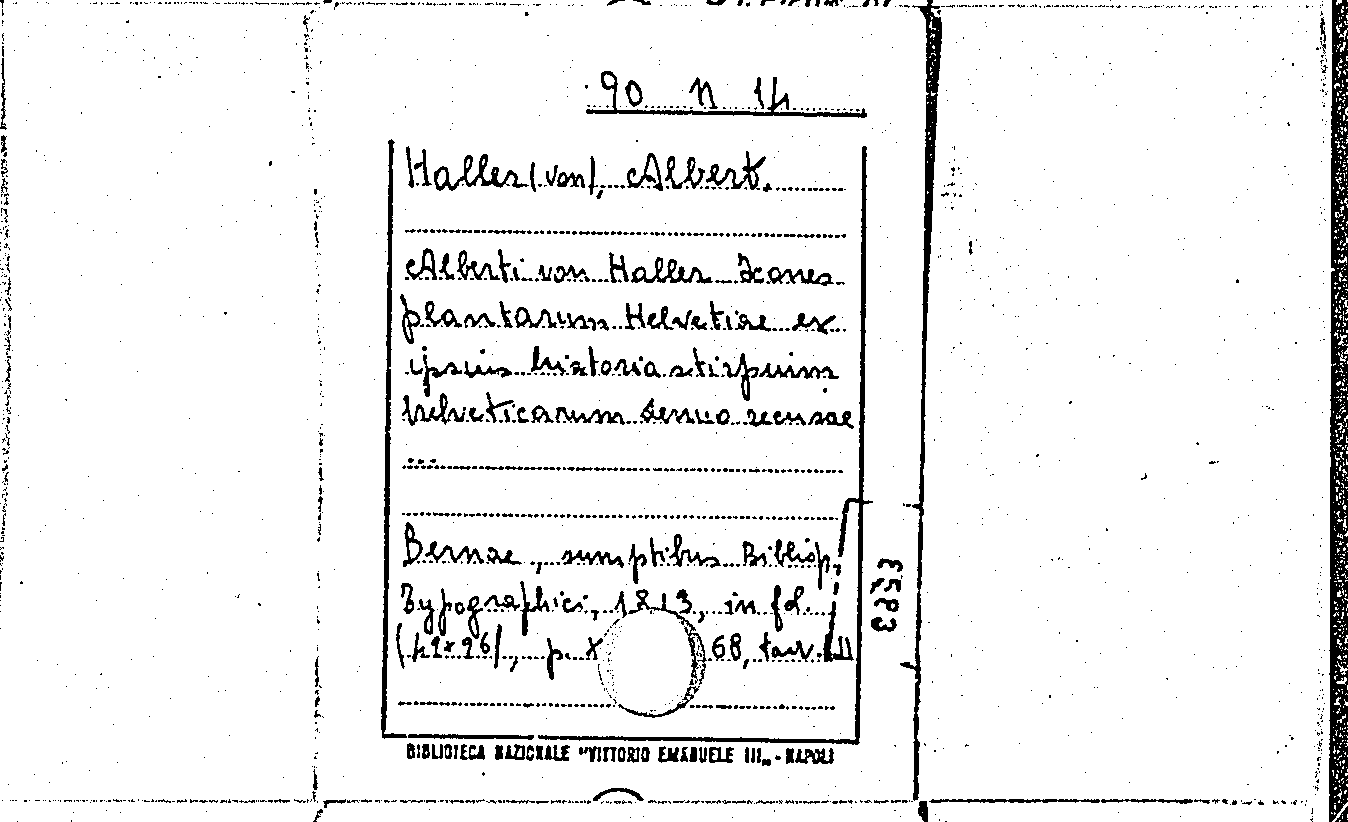 90 n 14
Haller (von), Albert.
Alberti von Haller Icones
plantarum Helvetiae ex
ipsius historia stirpuim
helveticarum denuo recusae
...
Bernae, sumptibus Bibliop.
Typographici, 1813, in fol.
p. X 68, tav.
BIBLIOTECA NAZIONALE "VITTORIO EMANUELE III„ - NAPOLI